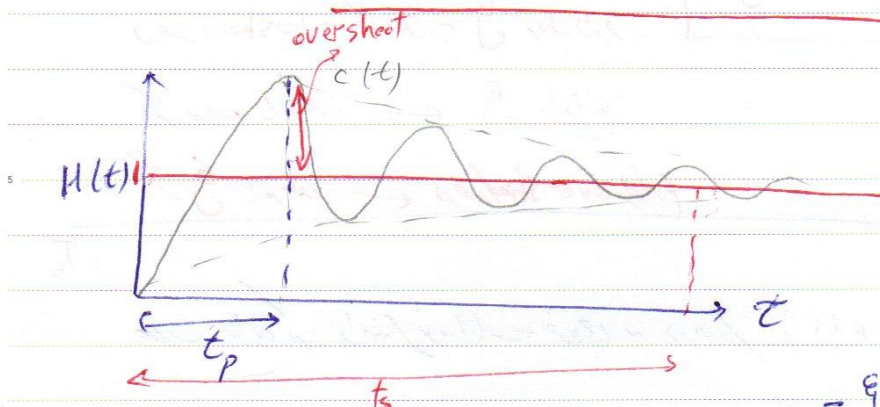 overshoot
c(t)
5
H(t)
t
t_p
t_s